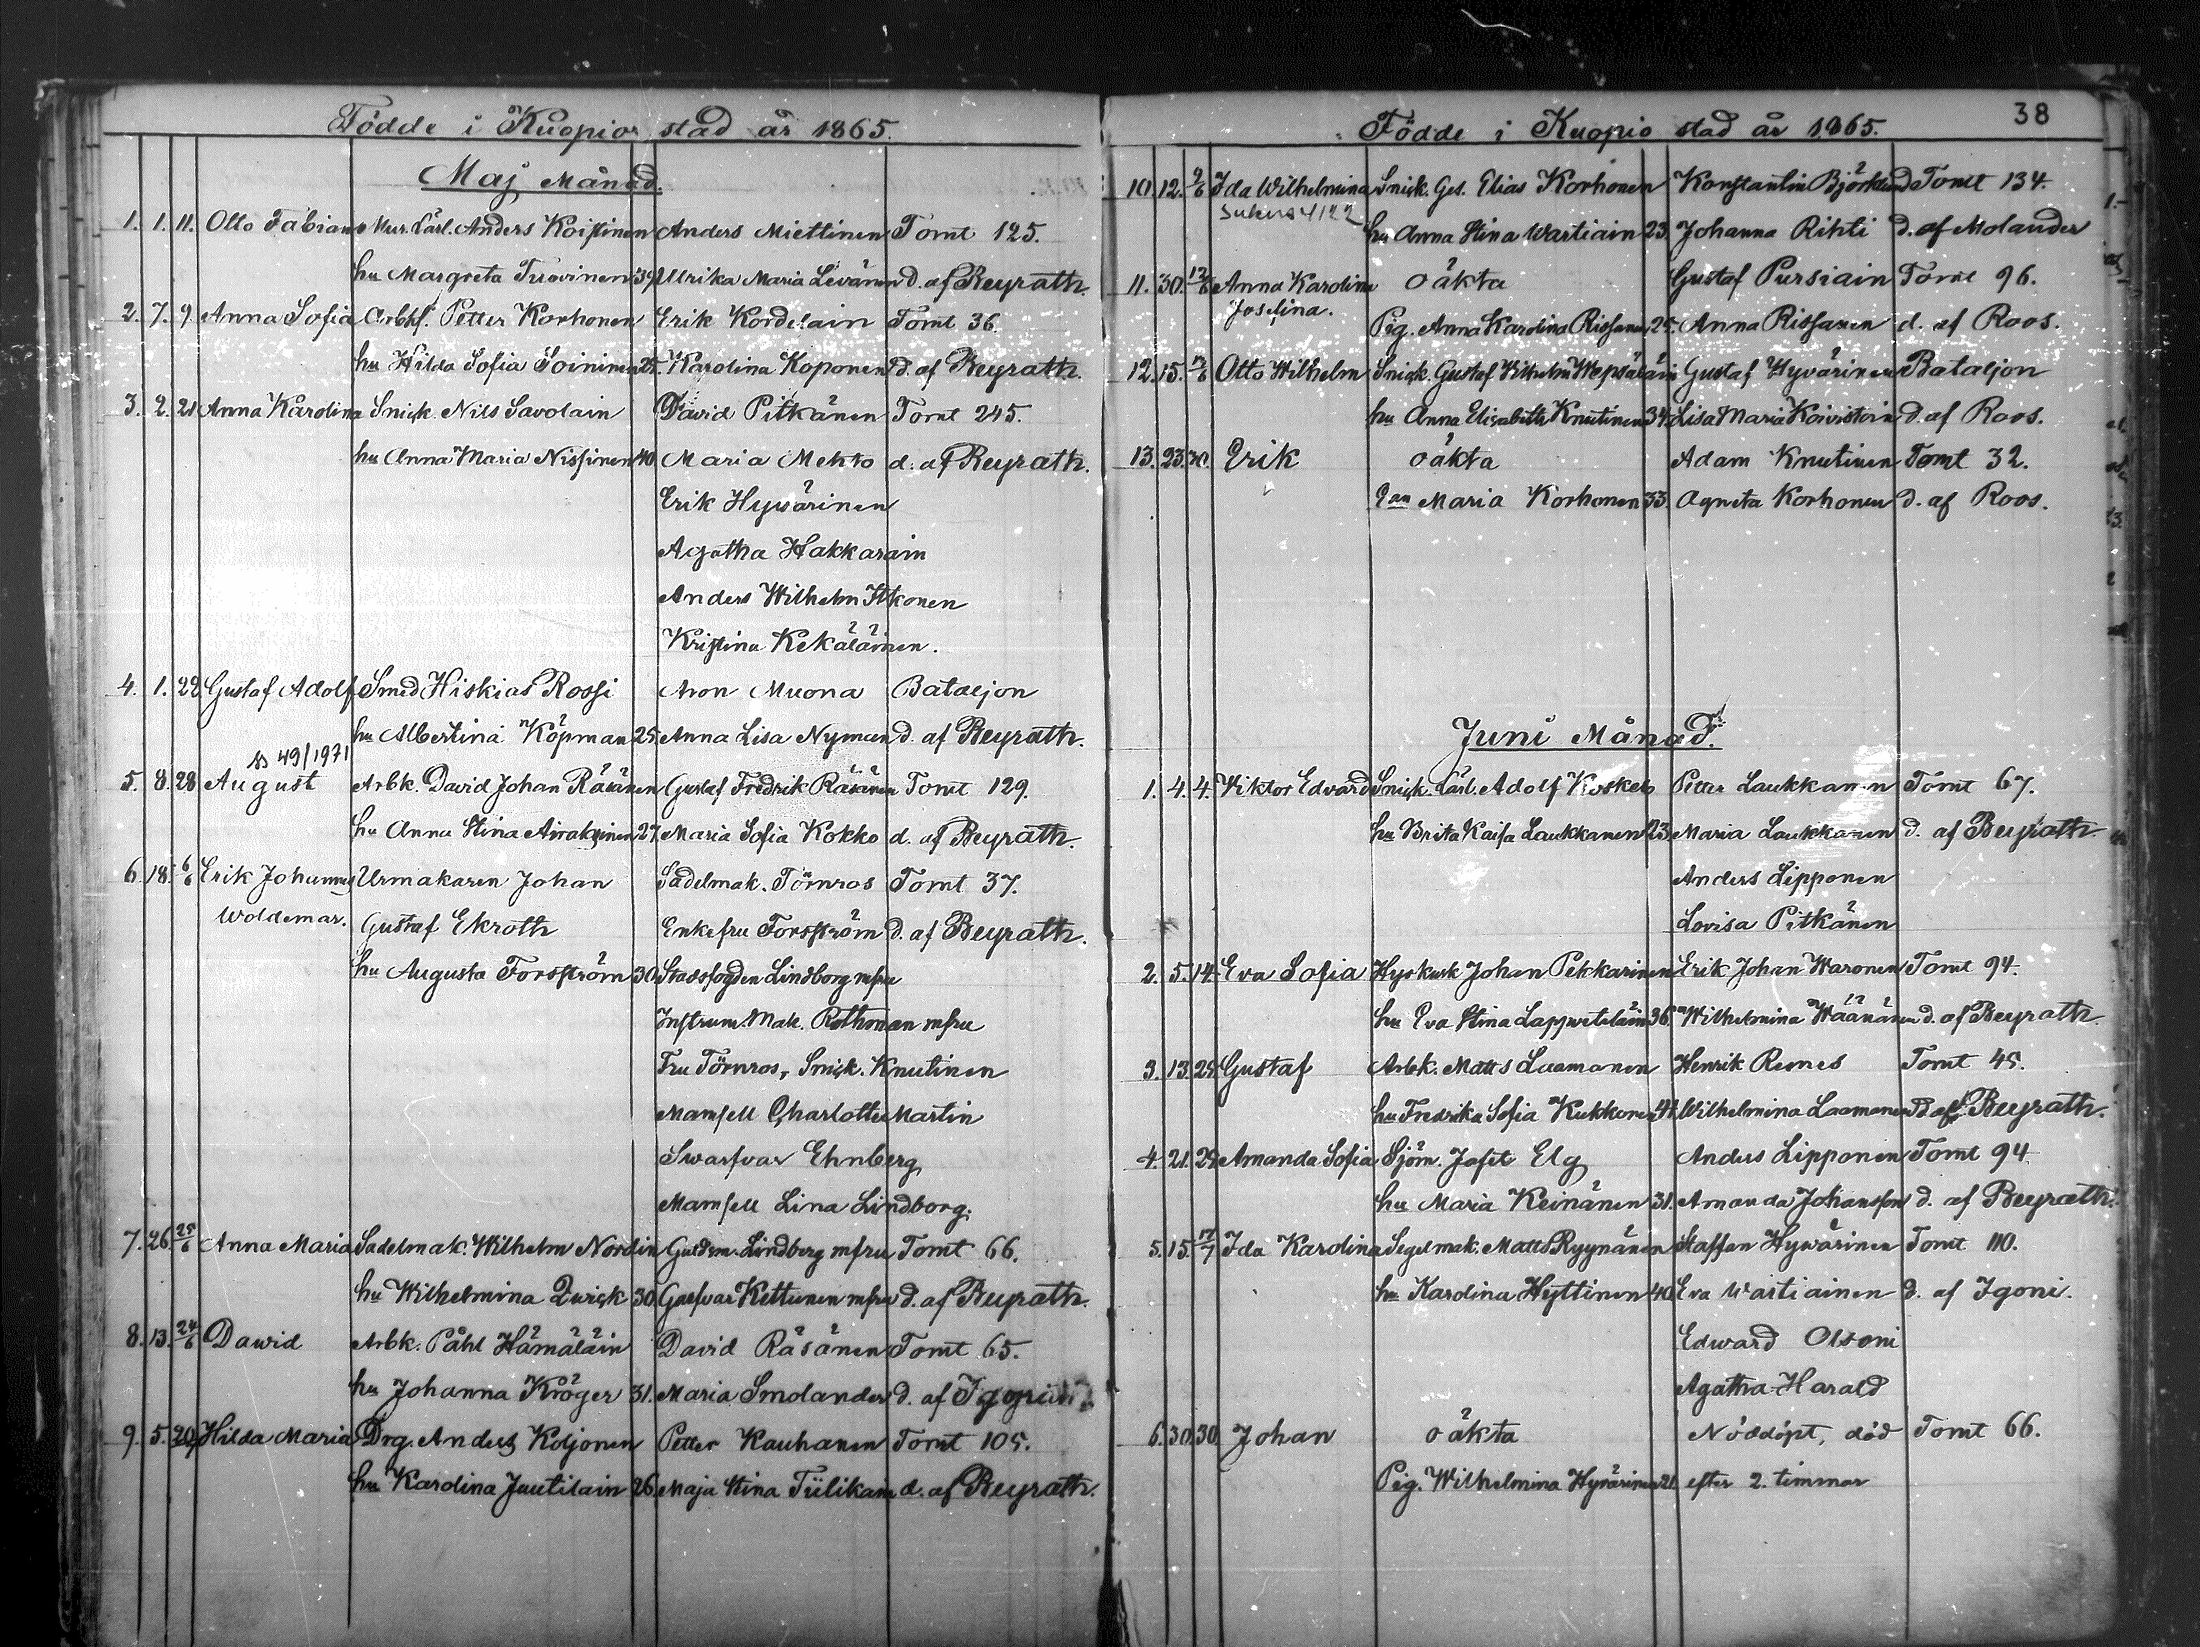 Födde i Kuopio stad år 1865.
Maj Månad.
1. 1. 11. Otto Fabian Mur. Lärl. Anders Koistinen Anders Miettinen Tomt 125.
hu Margreta Turovinen 39. Ulrika Maria Levänen d. af Beyrath.
2. 7. 9. Anna Sofia Arbkf. Petter Korhonen Erik Kordelain Tomt 36.
hu Hilda Sofia Soininen 25. Karolina Koponen d. af Beyrath.
3. 2. 21 Anna Karolina Snick. Nils Savolain David Pitkänen Tomt 245.
hu Anna Maria Nissinen 40. Maria Mehto d. af Beyrath.
Erik Hyvärinen
Agatha Hakkarain
Anders Wilhelm Itkonen
Kristina Kekäläinen.
4. 1. 22 Gustaf Adolf Smed Hiskias Rossi Aron Muona Bataljon
hu Albertina Köpman 25. Anna Lisa Nyman d. af Beyrath.
49/1971
5. 8. 28 August Arbk. David Johan Räsänen Gustaf Fredrik Räsänen Tomt 129.
hu Anna Stina 27. Maria Sofia Kokko d. af Beyrath.
6. 18. 6/6 Erik Johannes Urmakaren Johan Sadelmak. Törnros Tomt 37.
Woldemar. Gustaf Ekroth Enkefru Forsström d. af Beyrath.
hu Augusta Forsström 30. Stadsfogden Lindborg mfru
Instrum. Mak. Rothman mfru
Fru Törnros, Snick. Knutinen
Mamsell Charlotte Martin
Swarfvar Ehnberg
Mamsell Lina Lindborg.
7. 26. 25/6 Anna Maria Sadelmak. Wilhelm Nordin Guldsm. Lindberg mfru Tomt 66.
hu Wilhelmina Qvick 30. Garfvar Kettunen mfru d. af Beyrath.
8. 13. 24/6 Dawid Arbk. Påhl Hämäläin David Räsänen Tomt 65.
hu Johanna Kröger 31. Maria Smolander d. af Igoni
9. 5. Hilda Maria Drg. Anders Koljonen Petter Kauhanen Tomt 105.
hu Karolina Juutilain 26. Maja Stina Tiilikain d. af Beyrath.
Födde i Kuopio stad år 1865. 38
10. 12. 9/6 Ida Wilhelmina Snick. Ges. Elias Korhonen Konstantin Björklund Tomt 134.
hu Anna Stina Wartiain 23. Johanna Rihti d. af Molander
11. 30. 12/6 Anna Karolina oäkta Gustaf Pursiain Tomt 96.
Josefina. Pig. Anna Karolina Rissanen 25. Anna Rissanen d. af Roos.
12. 15. Otto Wilhelm Snick. Gustaf Wilhelm Wepsäläin Gustaf Hyvärinen Bataljon
hu Anna Elisabeth Knutinen 34. Lisa Maria Koivistoin d. af Roos.
13. 23. Erik oäkta Adam Knutinen Tomt 32.
Maria Korhonen 33. Agneta Korhonen d. af Roos.
Juni Månad.
1. 4. 4. Viktor Edvard Snick. Lärl. Adolf Koskelo Petter Laukkanen Tomt 67.
hu Brita Kaisa Laukkanen 23. Maria Laukkanen d. af Beyrath
Anders Lipponen
Lovisa Pitkänen
2. 5. 14. Eva Sofia Hyrkusk Johan Pekkarinen Erik Johan Waronen Tomt 94.
hu Eva Stina Lappeteläin 36. Wilhelmina Wäänänen d. af Beyrath.
3. 13. 25. Gustaf Arbk. Matts Laamanen Henrik Remes Tomt 45.
hu Fredrika Sofia Kukkonen 41. Wilhelmina Laamanen d. af Beyrath.
4. 21. 24. Amanda Sofia Sjöm. Josef Elg Anders Lipponen Tomt 94
hu Maria Keinänen 31. Amanda Johansson d. af Beyrath.
5. 15. 17/7 Ida Karolina Segelmak. Matts Ryynänen Staffan Hyvärinen Tomt 110.
hu Karolina Hyttinen 40. Eva Wartiainen d. af Igoni.
Edward Olsoni
Agatha Harald
6. 30. 30. Johan oäkta Nöddöpt, död Tomt 66.
Pig. Wilhelmina Hyvärinen 21. efter 2. timmar